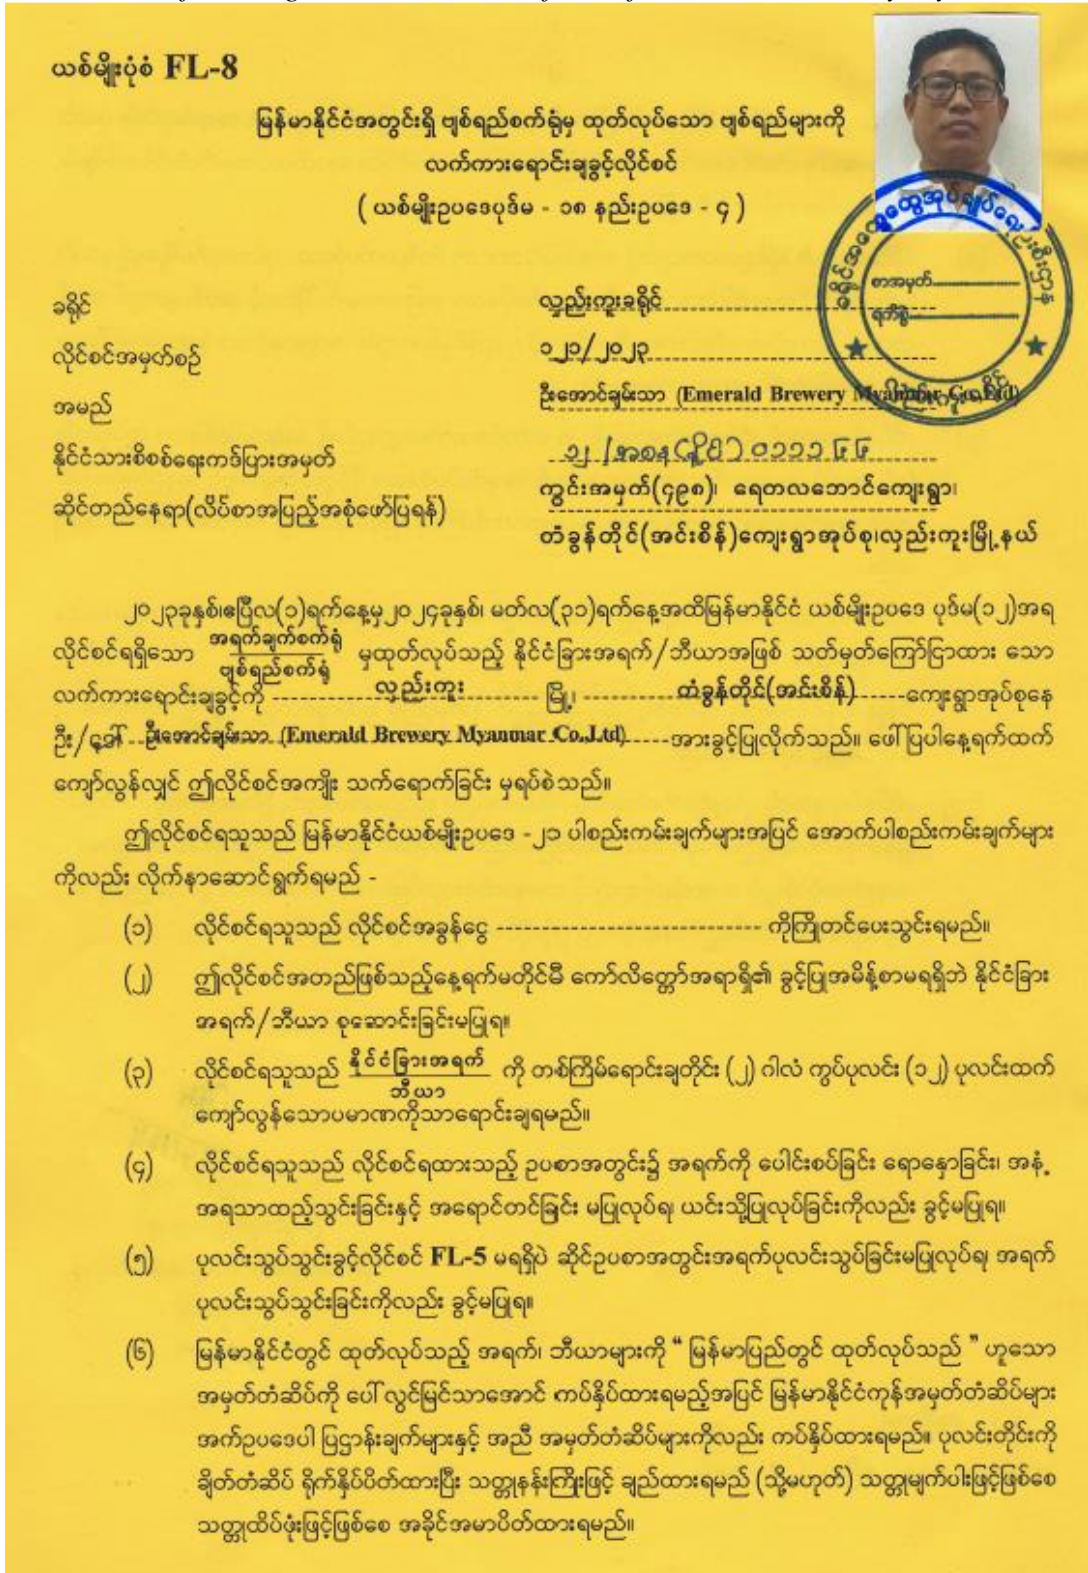 ယစ်မျိုးပုံစံ FL-8
မြန်မာနိုင်ငံအတွင်းရှိ ဗျစ်ရည်စက်ရုံမှ ထုတ်လုပ်သော ဗျစ်ရည်များကို
လက်ကားရောင်းချခွင့်လိုင်စင်
( ယစ်မျိုးဥပဒေပုဒ်မ - ၁၈ နည်းဥပဒေ - ၄ )
ခရိုင်အထွေထွေအုပ်ချုပ်ရေးဦးစီးဌာန
စာအမှတ်
ရက်စွဲ
ခရိုင် လှည်းကူးခရိုင်
လိုင်စင်အမှတ်စဉ် ၁၂၁/၂၀၂၃
အမည် ဦးအောင်ချမ်းသာ (Emerald Brewery Myanmar Co.,Ltd)
နိုင်ငံသားစိစစ်ရေးကဒ်ပြားအမှတ် ၁၂/အစန(နိုင်)
ဆိုင်တည်နေရာ(လိပ်စာအပြည့်အစုံဖော်ပြရန်) ကွင်းအမှတ်(၄၉၈)၊ ရေတလဘောင်ကျေးရွာ၊
တံခွန်တိုင်(အင်းစိန်)ကျေးရွာအုပ်စု၊လှည်းကူးမြို့နယ်
၂၀၂၃ခုနှစ်၊ဧပြီလ(၁)ရက်နေ့မှ၂၀၂၄ခုနှစ်၊ မတ်လ(၃၁)ရက်နေ့အထိမြန်မာနိုင်ငံ ယစ်မျိုးဥပဒေ ပုဒ်မ(၁၂)အရ
လိုင်စင်ရရှိသော အရက်ချက်စက်ရုံ ဗျစ်ရည်စက်ရုံ မှထုတ်လုပ်သည့် နိုင်ငံခြားအရက်/ဘီယာအဖြစ် သတ်မှတ်ကြော်ငြာထား သော
လက်ကားရောင်းချခွင့်ကို လှည်းကူး မြို့၊ တံခွန်တိုင်(အင်းစိန်) ကျေးရွာအုပ်စုနေ
ဦး/ဒေါ် ဦးအောင်ချမ်းသာ (Emerald Brewery Myanmar Co.,Ltd) အားခွင့်ပြုလိုက်သည်။ ဖေါ်ပြပါနေ့ရက်ထက်
ကျော်လွန်လျှင် ဤလိုင်စင်အကျိုး သက်ရောက်ခြင်း မှရပ်စဲသည်။
ဤလိုင်စင်ရသူသည် မြန်မာနိုင်ငံယစ်မျိုးဥပဒေ -၂၁ ပါစည်းကမ်းချက်များအပြင် အောက်ပါစည်းကမ်းချက်များ
ကိုလည်း လိုက်နာဆောင်ရွက်ရမည် -
(၁) လိုင်စင်ရသူသည် လိုင်စင်အခွန်ငွေ ---------------------------- ကိုကြိုတင်ပေးသွင်းရမည်။
(၂) ဤလိုင်စင်အတည်ဖြစ်သည့်နေ့ရက်မတိုင်မီ ကော်လိတ္တော်အရာရှိ၏ ခွင့်ပြုအမိန့်စာမရရှိဘဲ နိုင်ငံခြား
အရက်/ဘီယာ စုဆောင်းခြင်းမပြုရ။
(၃) လိုင်စင်ရသူသည် နိုင်ငံခြားအရက် ဘီယာ ကို တစ်ကြိမ်ရောင်းချတိုင်း (၂) ဂါလံ ကွပ်ပုလင်း (၁၂) ပုလင်းထက်
ကျော်လွန်သောပမာဏကိုသာရောင်းချရမည်။
(၄) လိုင်စင်ရသူသည် လိုင်စင်ရထားသည့် ဥပစာအတွင်း၌ အရက်ကို ပေါင်းစပ်ခြင်း ရောနှောခြင်း၊ အနံ့
အရသာထည့်သွင်းခြင်းနှင့် အရောင်တင်ခြင်း မပြုလုပ်ရ၊ ယင်းသို့ပြုလုပ်ခြင်းကိုလည်း ခွင့်မပြုရ။
(၅) ပုလင်းသွပ်သွင်းခွင့်လိုင်စင် FL-5 မရရှိပဲ ဆိုင်ဥပစာအတွင်းအရက်ပုလင်းသွပ်ခြင်းမပြုလုပ်ရ၊ အရက်
ပုလင်းသွပ်သွင်းခြင်းကိုလည်း ခွင့်မပြုရ။
(၆) မြန်မာနိုင်ငံတွင် ထုတ်လုပ်သည့် အရက်၊ ဘီယာများကို “ မြန်မာပြည်တွင် ထုတ်လုပ်သည် ” ဟူသော
အမှတ်တံဆိပ်ကို ပေါ်လွင်မြင်သာအောင် ကပ်နှိပ်ထားရမည့်အပြင် မြန်မာနိုင်ငံကုန်အမှတ်တံဆိပ်များ
အက်ဥပဒေပါ ပြဌာန်းချက်များနှင့် အညီ အမှတ်တံဆိပ်များကိုလည်း ကပ်နှိပ်ထားရမည်။ ပုလင်းတိုင်းကို
ချိတ်တံဆိပ် ရိုက်နှိပ်ပိတ်ထားပြီး သတ္တုနန်းကြိုးဖြင့် ချည်ထားရမည် (သို့မဟုတ်) သတ္တုမျက်ပါးဖြင့်ဖြစ်စေ
သတ္တုထိပ်ဖုံးဖြင့်ဖြစ်စေ အခိုင်အမာပိတ်ထားရမည်။